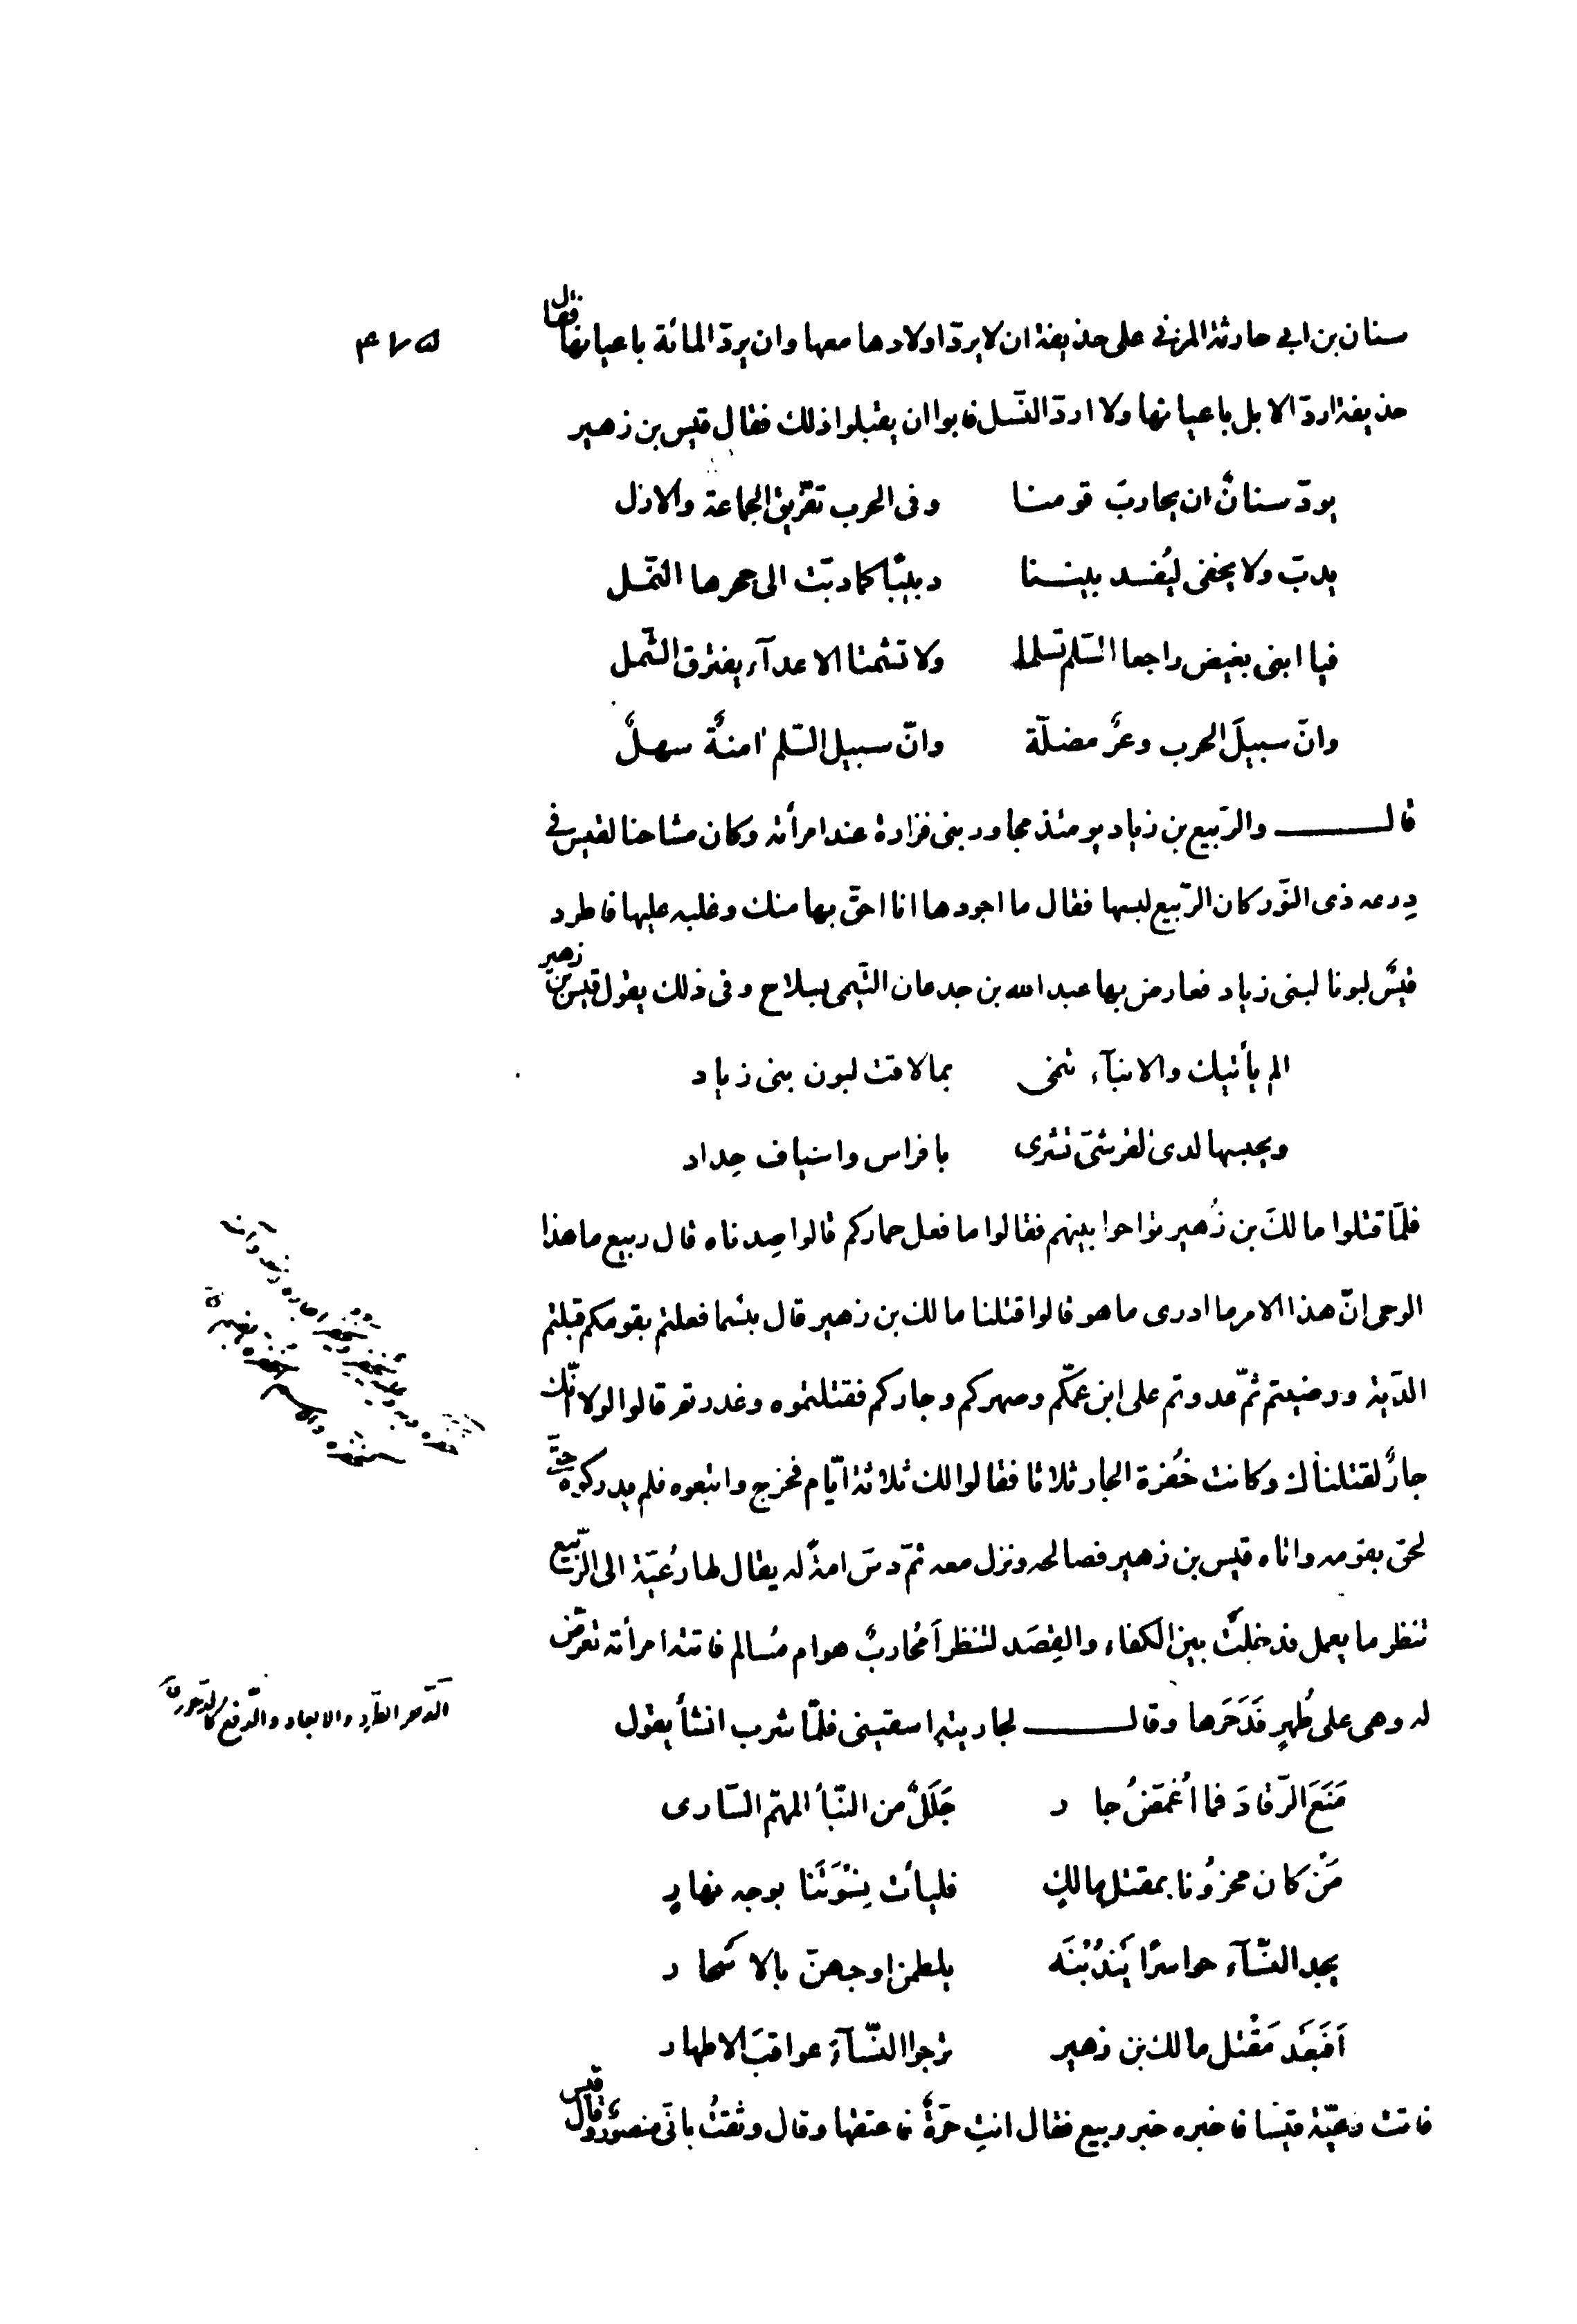 سنان بن ابي حارثة المزني على حذيفة ان لا يردّ اولادها معها وان يردّ المائة باعيانها فقال
حذيفة اردّ الابل باعيانها ولا اردّ النّسل فابوا ان يقبلوا ذلك فقال قيس بن زهير
يودّ سنانٌ ان يحارب قومنا وفى الحرب تفريق الجماعة والازل
يدبّ ولا يخفى ليُفسد بيننا دبيبًا كما دبّت الى جحرها النّمل
فيا ابنى بغيض راجعا السّلم تسلما ولا تشمتا الاعدآء يفترق الشّمل
وانّ سبيلَ الحرب وعرٌ مضلّة وانّ سبيل السّلم امنةٌ سهلٌ
قال والرّبيع بن زياد يومئذ مجاور بنى فزارة عند امرأته وكان مشاحنا لقيس فى
دِرعه ذى النّور كان الرّبيع لبسها فقال ما اجودها انا احقّ بها منك وغلبه عليها فاطرد
قيسٌ لبونا لبنى زياد فعارض بها عبد الله بن جدعان التّيمى بسلاح وفى ذلك يقول قيس بن زهير
الم يأتيك والانبآء تنمى بما لاقت لبون بنى زياد
ويحبسها لدى القرشىّ تشرى بافراس واسياف حِداد
فلمّا قتلوا مالكَ بن زُهير تواحوا بينهم فقالوا ما فعل حماركم قالوا صِدناه قال ربيع ما هذا
الوحى انّ هذا الامر ما ادرى ما هو قالوا قتلنا مالك بن زهير قال بئسما فعلتم بقومكم قبلتم
الدّية ورضيتم ثمّ عدوتم على ابن عمّكم وصهركم وجاركم فقتلتموه وغدرتم قالوا لولا انّك
جارٌ لقتلناك وكانت خُفرة الجار ثلاثا فقالوا لك ثلاثة ايّام فخرج واتبعوه فلم يدركوه حتّى
لحق بقومه واتاه قيس بن زهير فصالحه ونزل معه ثمّ دسّ امةً له يقال لها رُعيّة الى الرّبيع
تنظر ما يعمل فدخلتْ بين الكفاء والنِضَد لتنظر أمُحاربٌ هو ام مُسالم فاتته امرأته تعرّض
له وهى على طُهرٍ فَدَحَرَها وقال لجاريته اسقينى فلمّا شرب انشأ يقول
الدّحر الطّرد والابعاد والدّفع كالدّحور ق
مَنَعَ الرّقادَ فما اُغمّضُ حار جَلَلٌ من النّبأ المهمّ السّارى
مَنْ كان محزُونا بمقتل مالكٍ فليأت نِسْوَتَنا بوجه نهارٍ
يجد النّسآء حواسرًا يَندُبْنَه يلطمن اوجههنّ بالاسْحار
اَفَبَعْدَ مَقْتل مالك بن زهير ترجوا النّسآءُ عواقبَ الاطهار
فاتت رعيّة قيسًا فاخبره خبر ربيع فقال انتِ حرّةٌ فاعتقها وقال وثقتُ بانّى منصورٌ وقال قيس